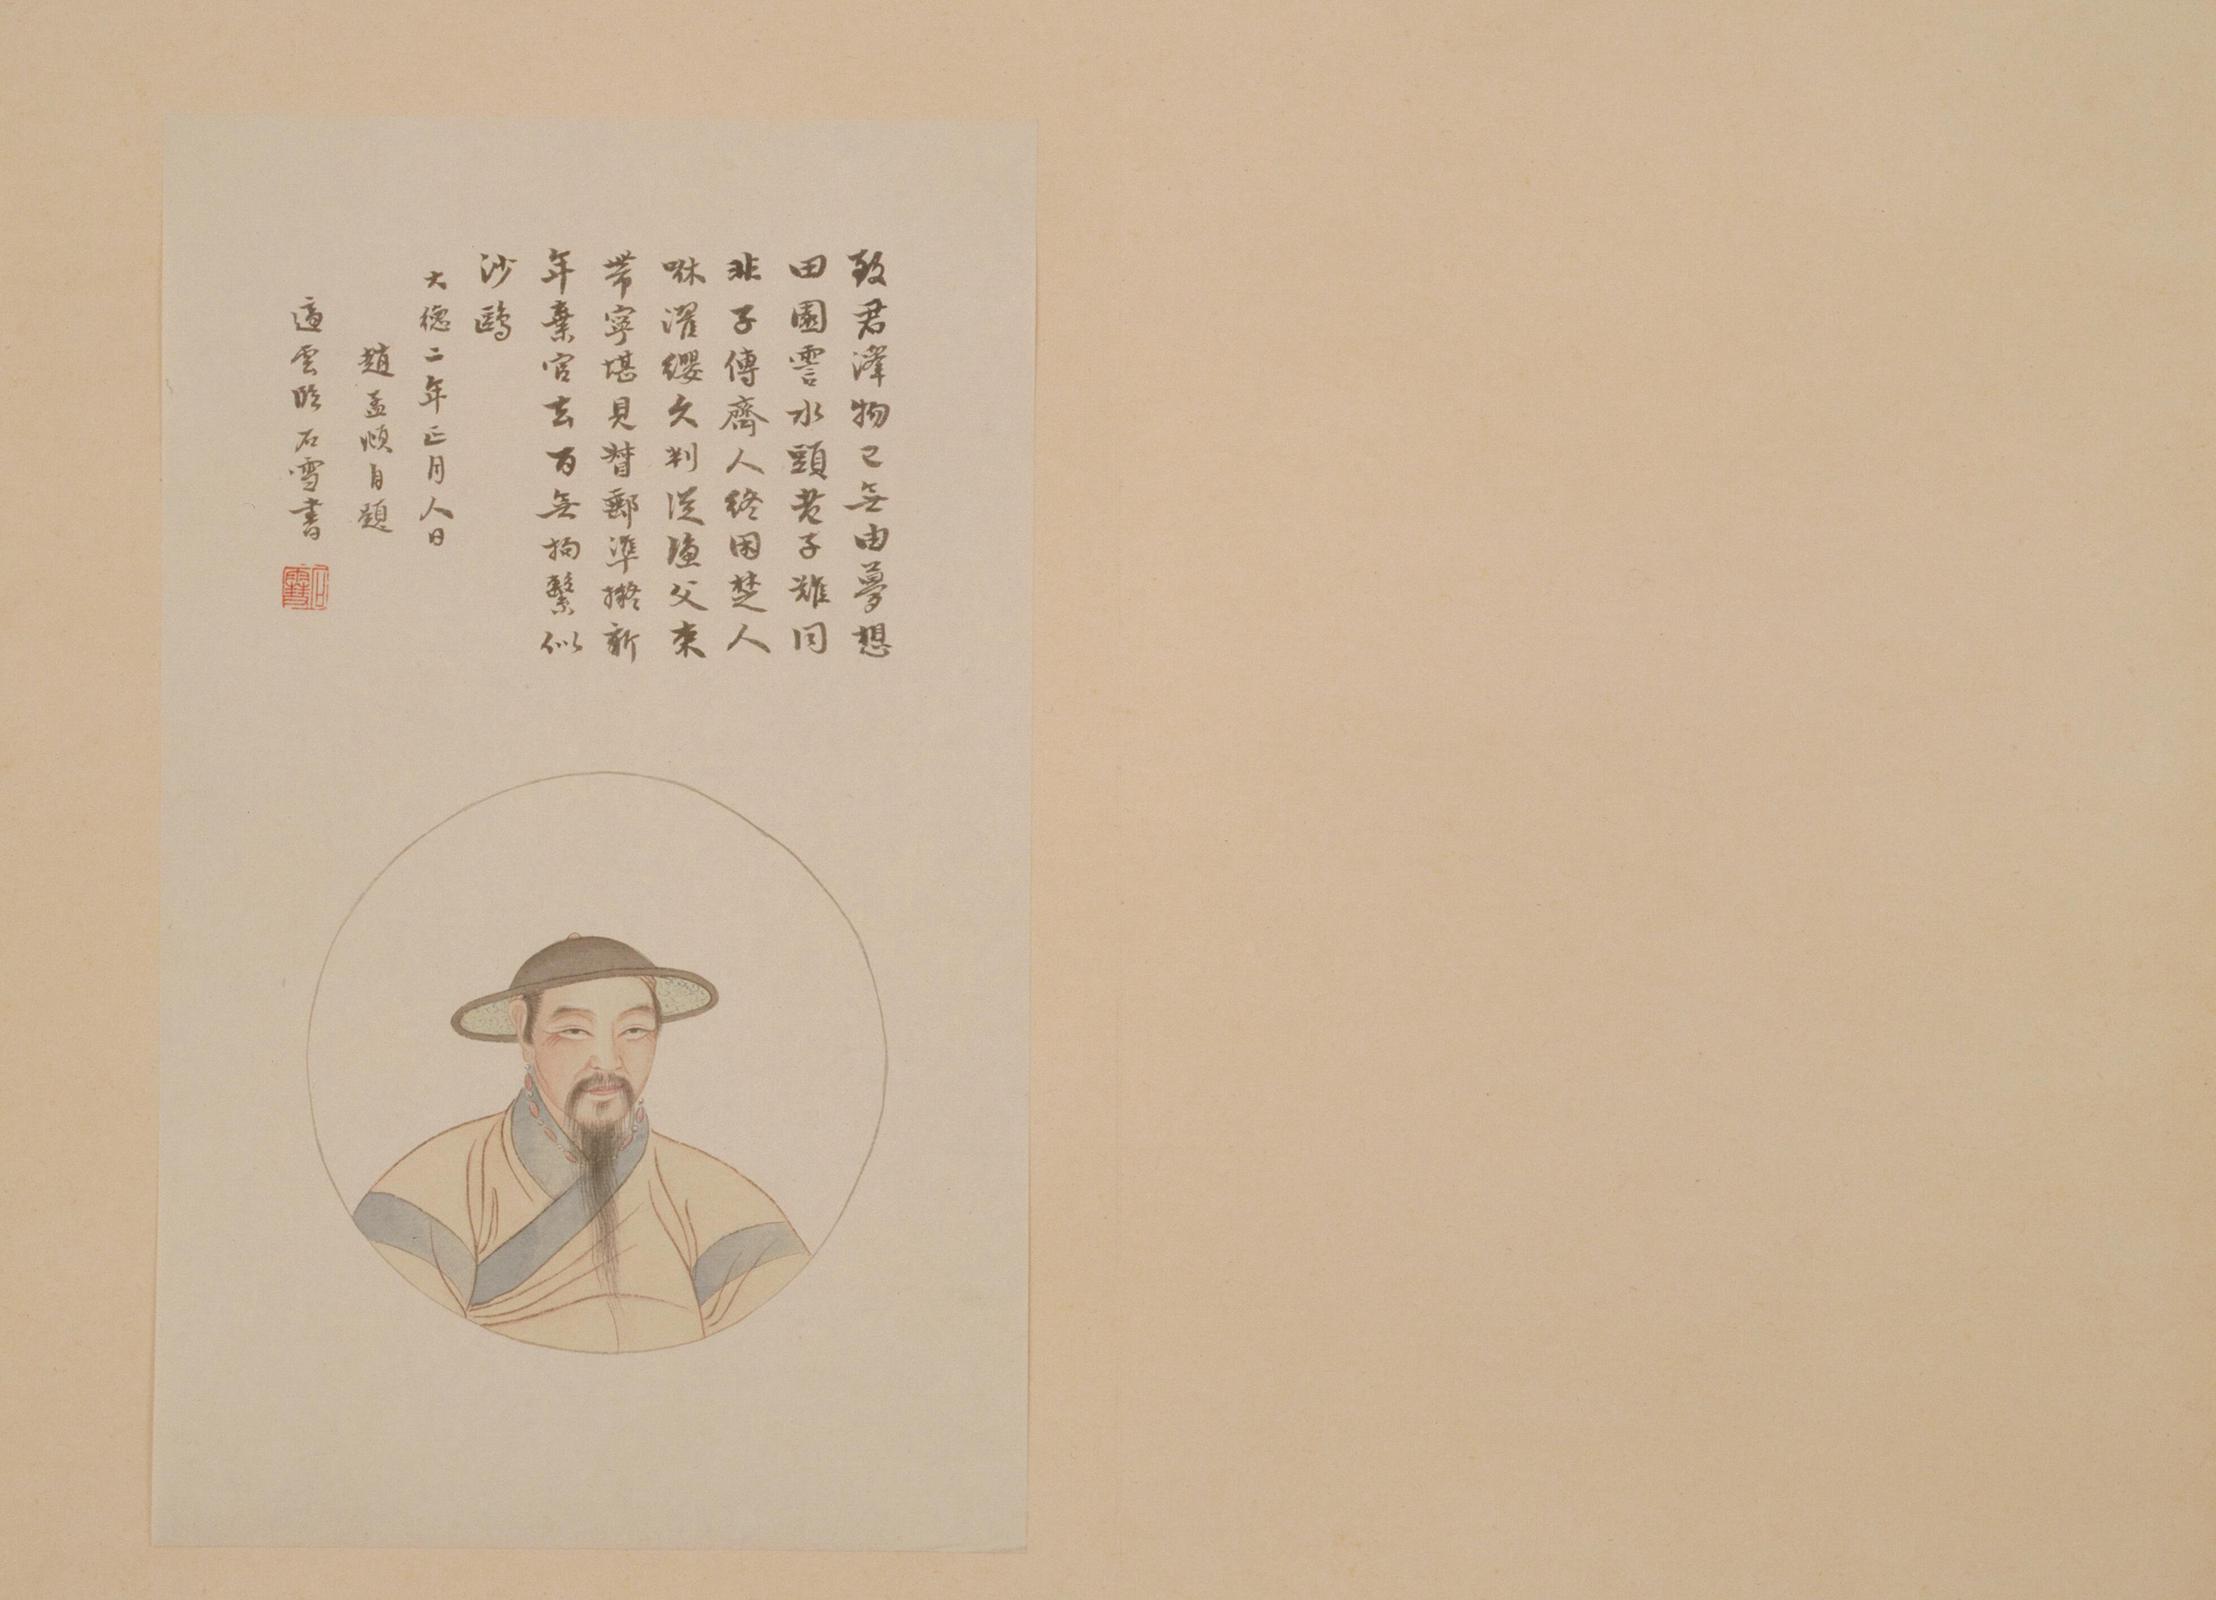 致君澤物已無由夢想
田園雲水頭老子難同
非子傳齊人終困楚人
咻濯纓久判從漁父束
帶寧堪見督郵準擬新
年棄官去百無拘繫似
沙鷗
大德二年正月人日
趙孟頫自題
適雲臨石雪書
石雪